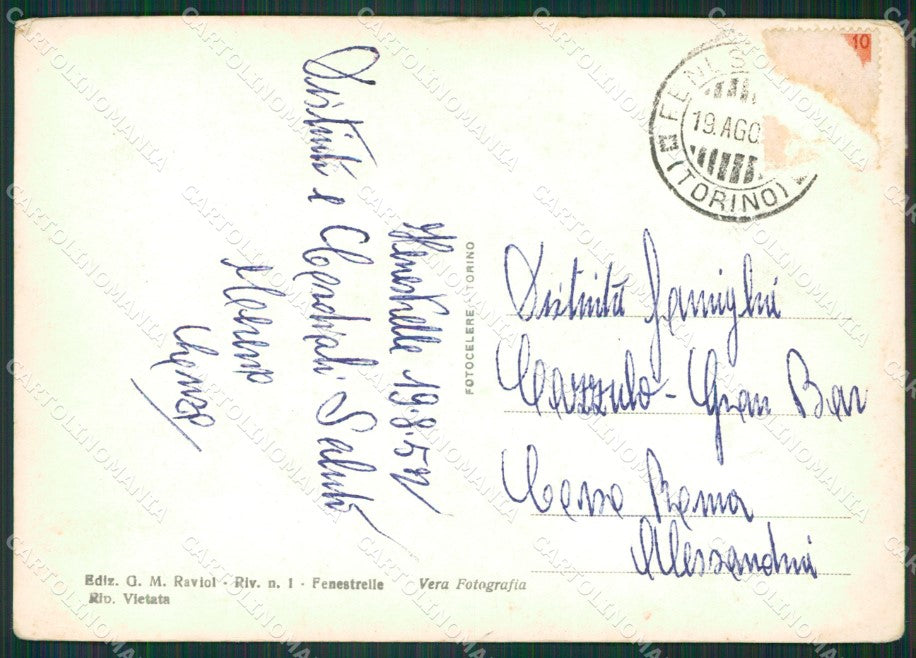 Fenestrelle 19.8.52
Distinti e Cordiali Saluti
Moreno
FOTOCELERE - TORINO
10
FENES
19.AGO.
(TORINO)
Distinta Famiglia
Cazzulo - Gran Bar
Corso Roma
Alessandria
Ediz. G. M. Raviol - Riv. n. 1 - Fenestrelle
Rip. Vietata
Vera Fotografia
CARTOLINOMANIA